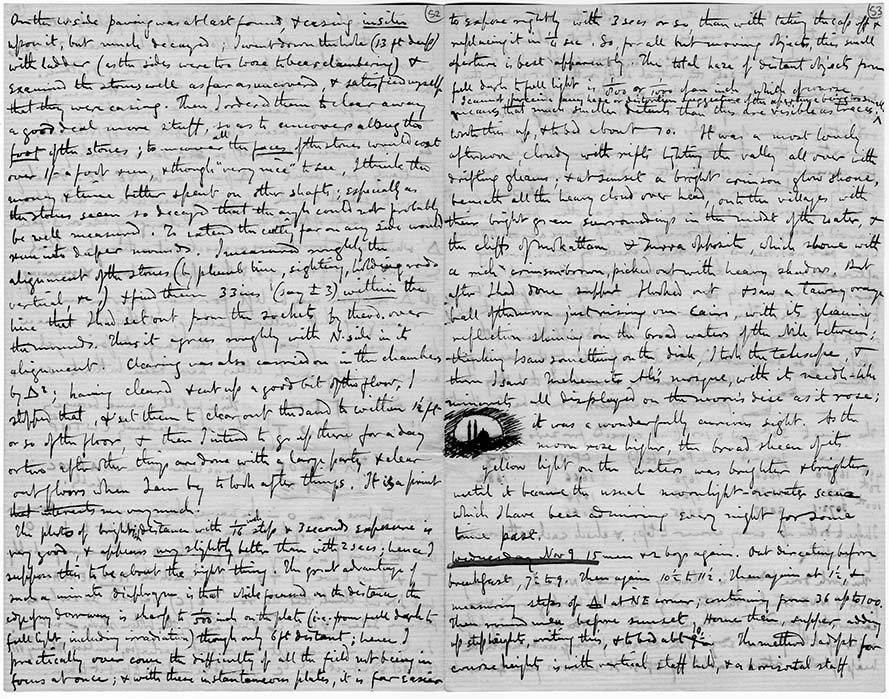 52
On the W side paving was at last found, & casing in situ
upon it, but much decayed; I went down the hole (13 ft deep)
with ladder (as the sides were too loose to bear clambering) &
examined the stones well as far as uncovered, & satisfied myself
that they were casing. Then I ordered them to clear away
a good deal more stuff, so as to uncover all along the
foot of the stones; to uncover all the faces of the stones would cost
over £1 a foot run, & though "very nice" to see, I think the
money & time better spent on other shafts; especially as
the stones seem so decayed that the angle could not probably
be well measured. To extend the cutting far on any side would
run into deeper mounds. I measured roughly the
alignment of the stones (by plumb line, sighting, holding rods
vertical &c) & find them 33 ins (say ± 3) within the
line that I had set out from the sockets by theod. over
the mounds. Thus it agrees roughly with N. side in its
alignment. Clearing was also carried on in the chambers
by Δ2; having cleared & cut up a good bit of the floor, I
stopped that, & set them to clear out the sand to within 1½ ft
or so of the floor & then I intend to go up there for a day
or two after other things are done with a large party & clear
out floors when I am by to look after things. It is a point
that interests me very much.
The photo of bright distance with 1/16 inch stop & 3 seconds exposure is
very good, & appears very slightly better than with 2 secs; hence I
suppose this to be about the right thing. The great advantage of
such a minute diaphragm is that while focussed on the distance, the
edge of my doorway is sharp to 1/100 inch on the plate (i.e. from full dark to
full light, including irradiation) though only 6 ft distant; hence I
practically overcome the difficulty of all the field not being in
focus at once; & with these instantaneous plates, it is far easier
53
to expose rightly with 3 secs or so, than with taking the cap off &
replacing it in ¼ sec. So, for all but moving objects, this small
aperture is best apparently. The total haze of distant objects from
full dark to full light is 1/800 or 1/1000 of an inch, which of course
means that much smaller details than this are visible as traces,
I cannot perceive any haze or distortion suggestive of the aperture being too small.
Wrote this up, & to bed about 10. It was a most lovely
afternoon cloudy with rifts lighting the valley all over with
drifting gleams; & at sunset a bright crimson glow shone,
beneath all the heavy cloud over head, on the villages with
their bright green surroundings in the midst of the water, &
the cliffs of Mokattam & Turra opposite, which shone with
a rich crimson brown, picked out with heavy shadows. But
after I had done supper I looked out & saw a tawny orange
ball of the moon just rising over Cairo, with its gleaming
reflection shining on the broad waters of the Nile between;
thinking I saw something on the disk, I took the telescope, &
there I saw Mehemet Ali's mosque, with its needle-like
minarets all displayed on the moon's disc as it rose;
it was a wonderfully curious sight. As the
moon rose higher, the broad sheen of its
yellow light on the waters was brighter & brighter
until it became the usual moonlight-on-water scene
which I have been admiring every night for some
time past.
Wednesday Nov 9 15 men & 2 boys again. Out directing before
breakfast, 7½ to 9. Then again 10½ to 11½. Then again at 1½, &
measuring steps of Δ1 at NE corner; continuing from 36 up to 100.
Then round men before sunset. Home then, supper, adding
up step heights, writing this, & to bed abt The method I adopt for
course height is with vertical staff held, & a horizontal staff